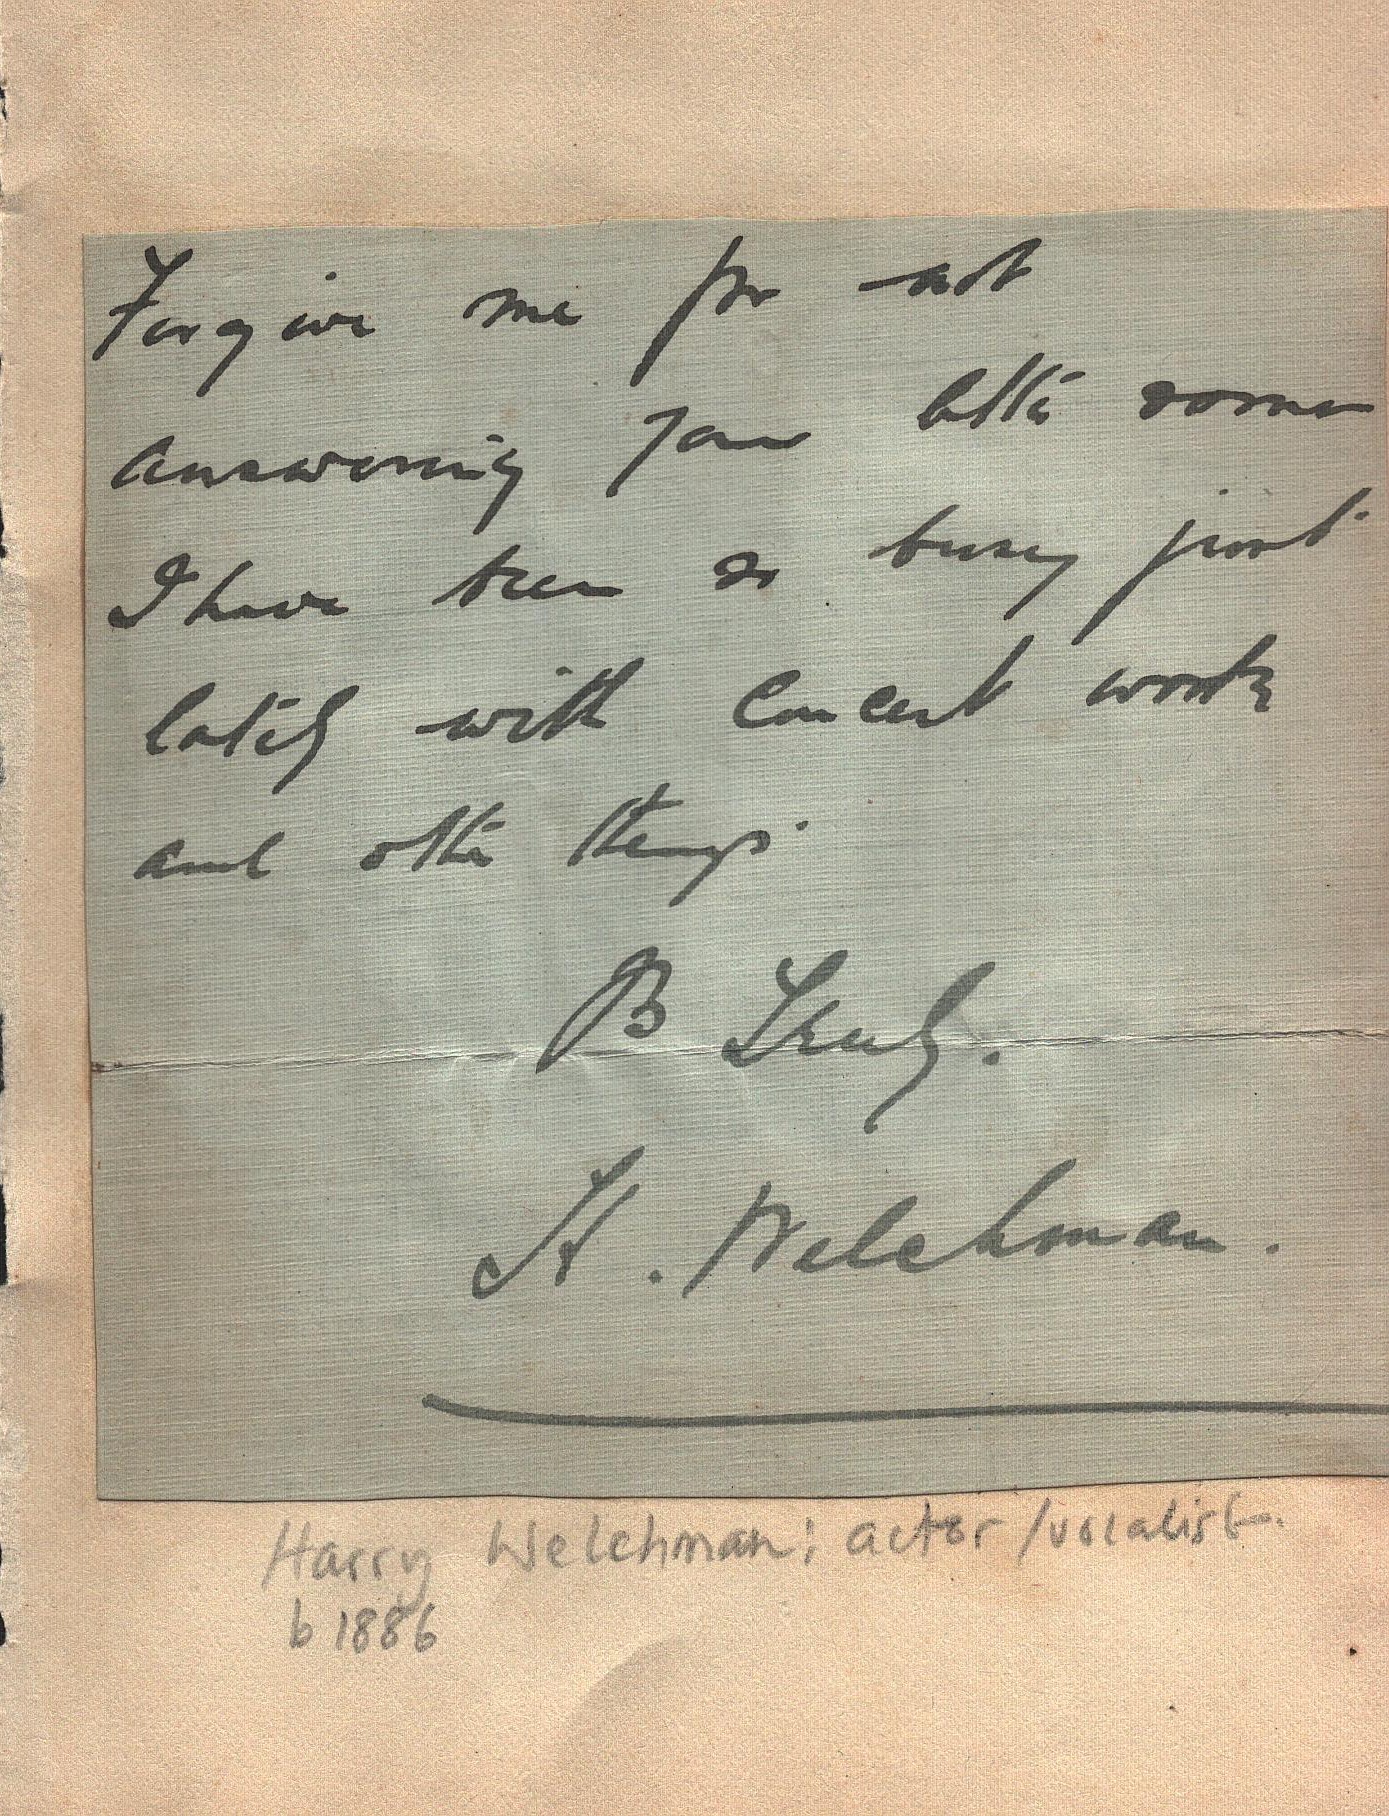 Forgive me for not
answering your letter sooner
I have been so busy just
lately with concert work
and other things.
Truly.
H. Welchman.
Harry Welchman: actor/vocalist.
b 1886